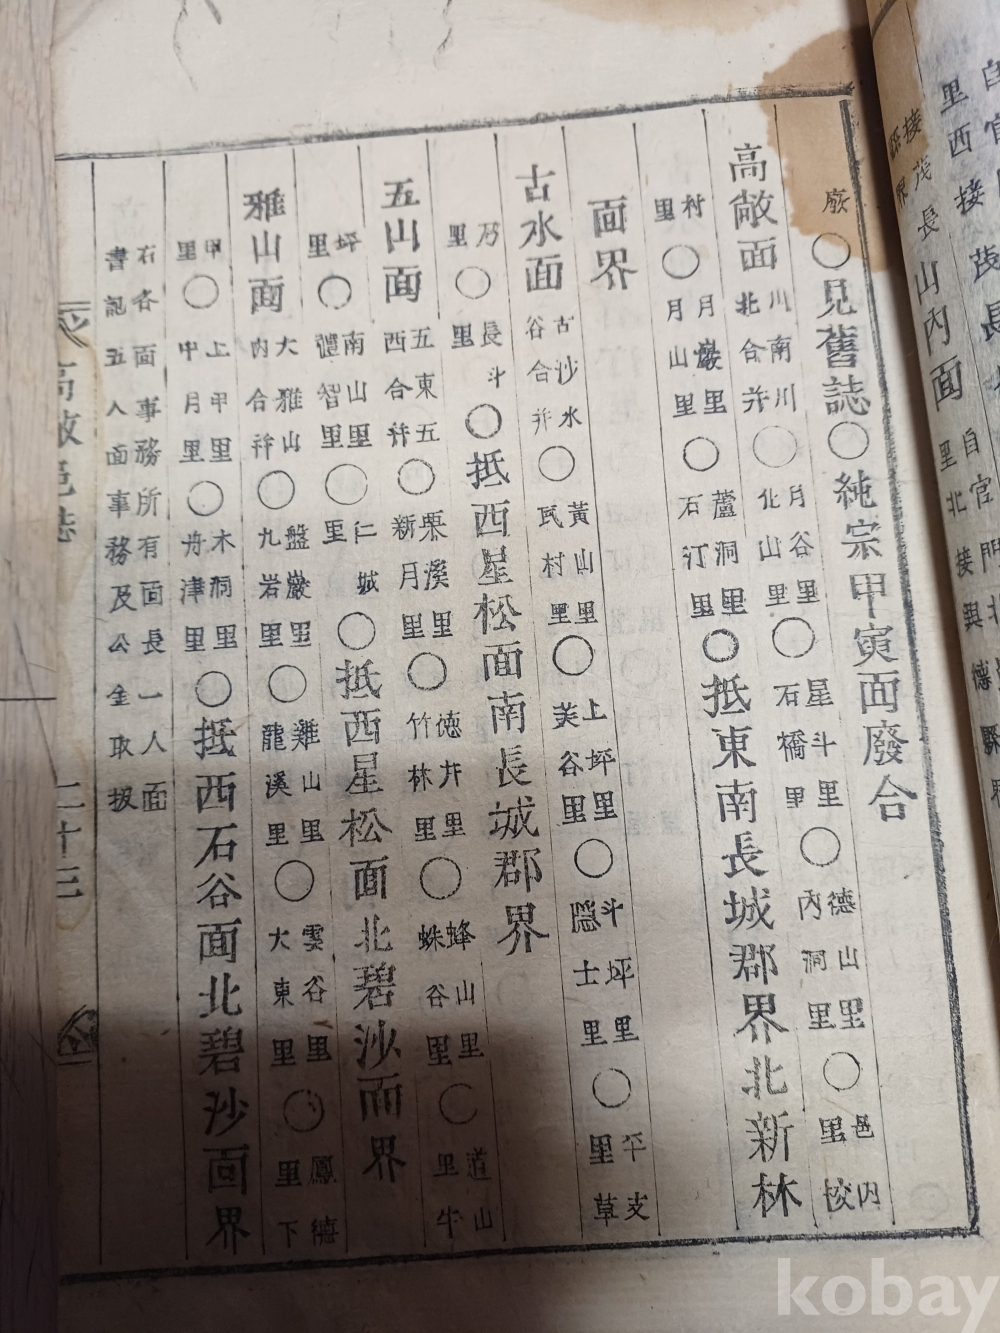 里西接茂長
接茂長山內面
廢○見舊誌○純宗甲寅面廢合
高敞面川南川北合并○月谷里化山里○星斗里石橋里○德山里內洞里○邑內里校
村里○月巖里月山里○蘆洞里石汀里○抵東南長城郡界北新林
面界
古水面古沙水谷合并○黃山里民村里○上坪里芙谷里○斗坪里隱士里○平支里草
乃里○長斗里○抵西星松面南長城郡界
五山面五東五西合并○栗溪里新月里○德井里竹林里○蜂山里蛛谷里○道山里牛
坪里○南山里禮智里○仁城里○抵西星松面北碧沙面界
雅山面大雅山內合并○盤巖里九岩里○雞山里龍溪里○雲谷里大東里○鳳德里下
甲里○上甲里中月里○木洞里舟津里○抵西石谷面北碧沙面界
石各面事務所有面長一人面
書記五人面事務及公金取扱
高敞邑誌 二十三
kobay